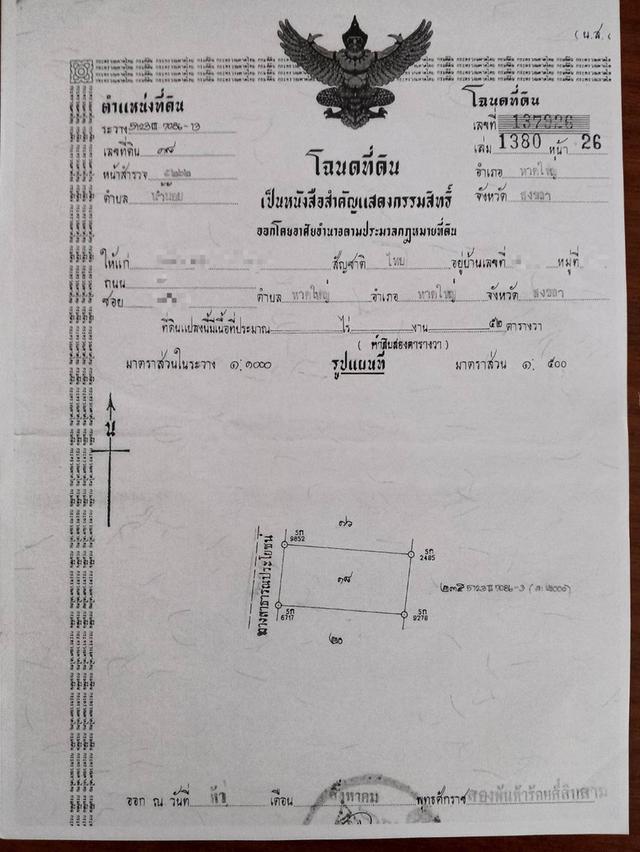 (น.ส.
ตำแหน่งที่ดิน
ระวาง 5123 III 7086-13
เลขที่ดิน ๑๘
หน้าสำรวจ ๕๒๒๒
ตำบล น้ำน้อย
โฉนดที่ดิน
เลขที่ 137926
เล่ม 1380 หน้า 26
อำเภอ หาดใหญ่
จังหวัด สงขลา
โฉนดที่ดิน
เป็นหนังสือสำคัญแสดงกรรมสิทธิ์
ออกโดยอาศัยอำนาจตามประมวลกฎหมายที่ดิน
ให้แก่ สัญชาติ ไทย อยู่บ้านเลขที่ หมู่ที่
ถนน
ซอย ตำบล หาดใหญ่ อำเภอ หาดใหญ่ จังหวัด สงขลา
ที่ดินแปลงนี้มีเนื้อที่ประมาณ ไร่ งาน ๕๒ ตารางวา
(ห้าสิบสองตารางวา)
มาตราส่วนในระวาง ๑:๑๐๐๐ รูปแผนที่ มาตราส่วน ๑: ๕๐๐
น
ทางสาธารณประโยชน์
รก
9852
รก
2485
๑๘
รก
6717
รก
9278
๒๐
ออก ณ วันที่ ห้า เดือน สิงหาคม พุทธศักราช สองพันห้าร้อยสี่สิบสาม